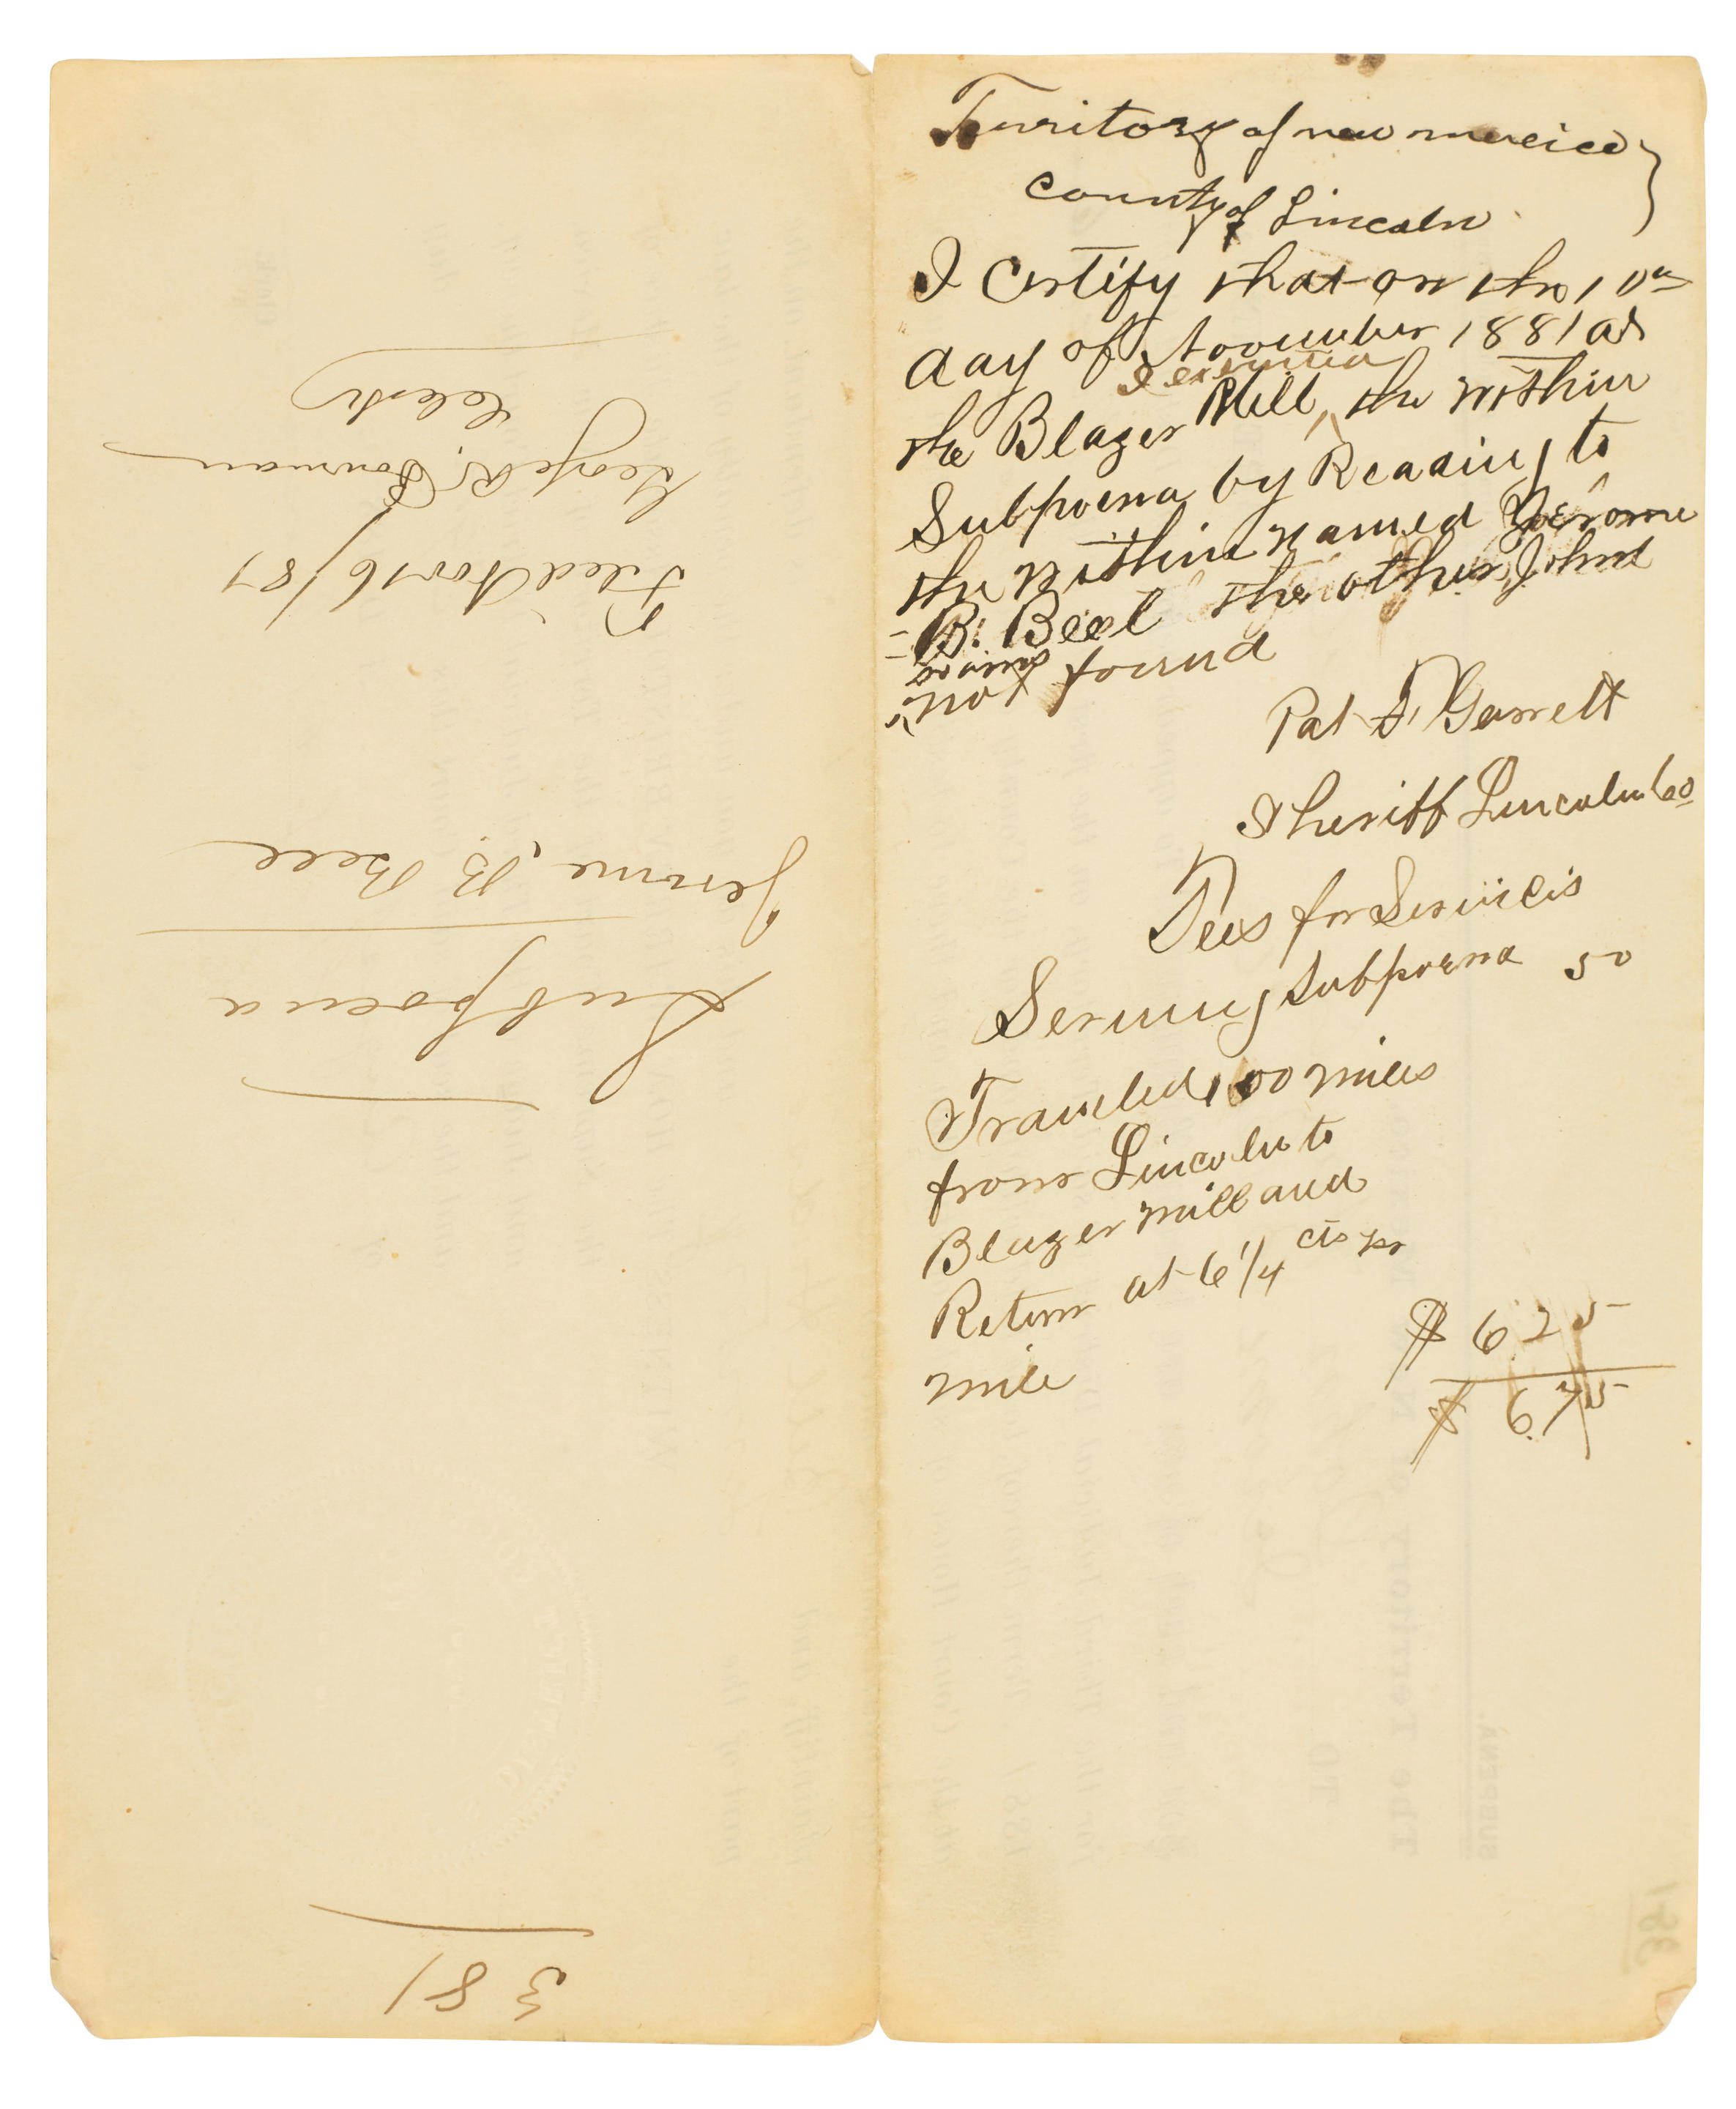 Territory of new mexico }
County of Lincoln
I certify that on the 10th
day of November 1881 at
I executed
the Blazer Mill, the within
Subpoena by Reading to
the within named Jerome
B. Bell the other John
not found
Pat F. Garrett
Sheriff Lincoln Co
Fees for Services
Serving Subpoena 50
Traveled 100 miles
from Lincoln to
Blazer mill and
Return at 6 1/4 cts pr
mile
$ 6.25
$ 6.75
381
Subpoena
Jerome B. Bell
Filed Nov 16/81
George R. Bowman
Clerk
SUBPENA.
The Territory
TO
381